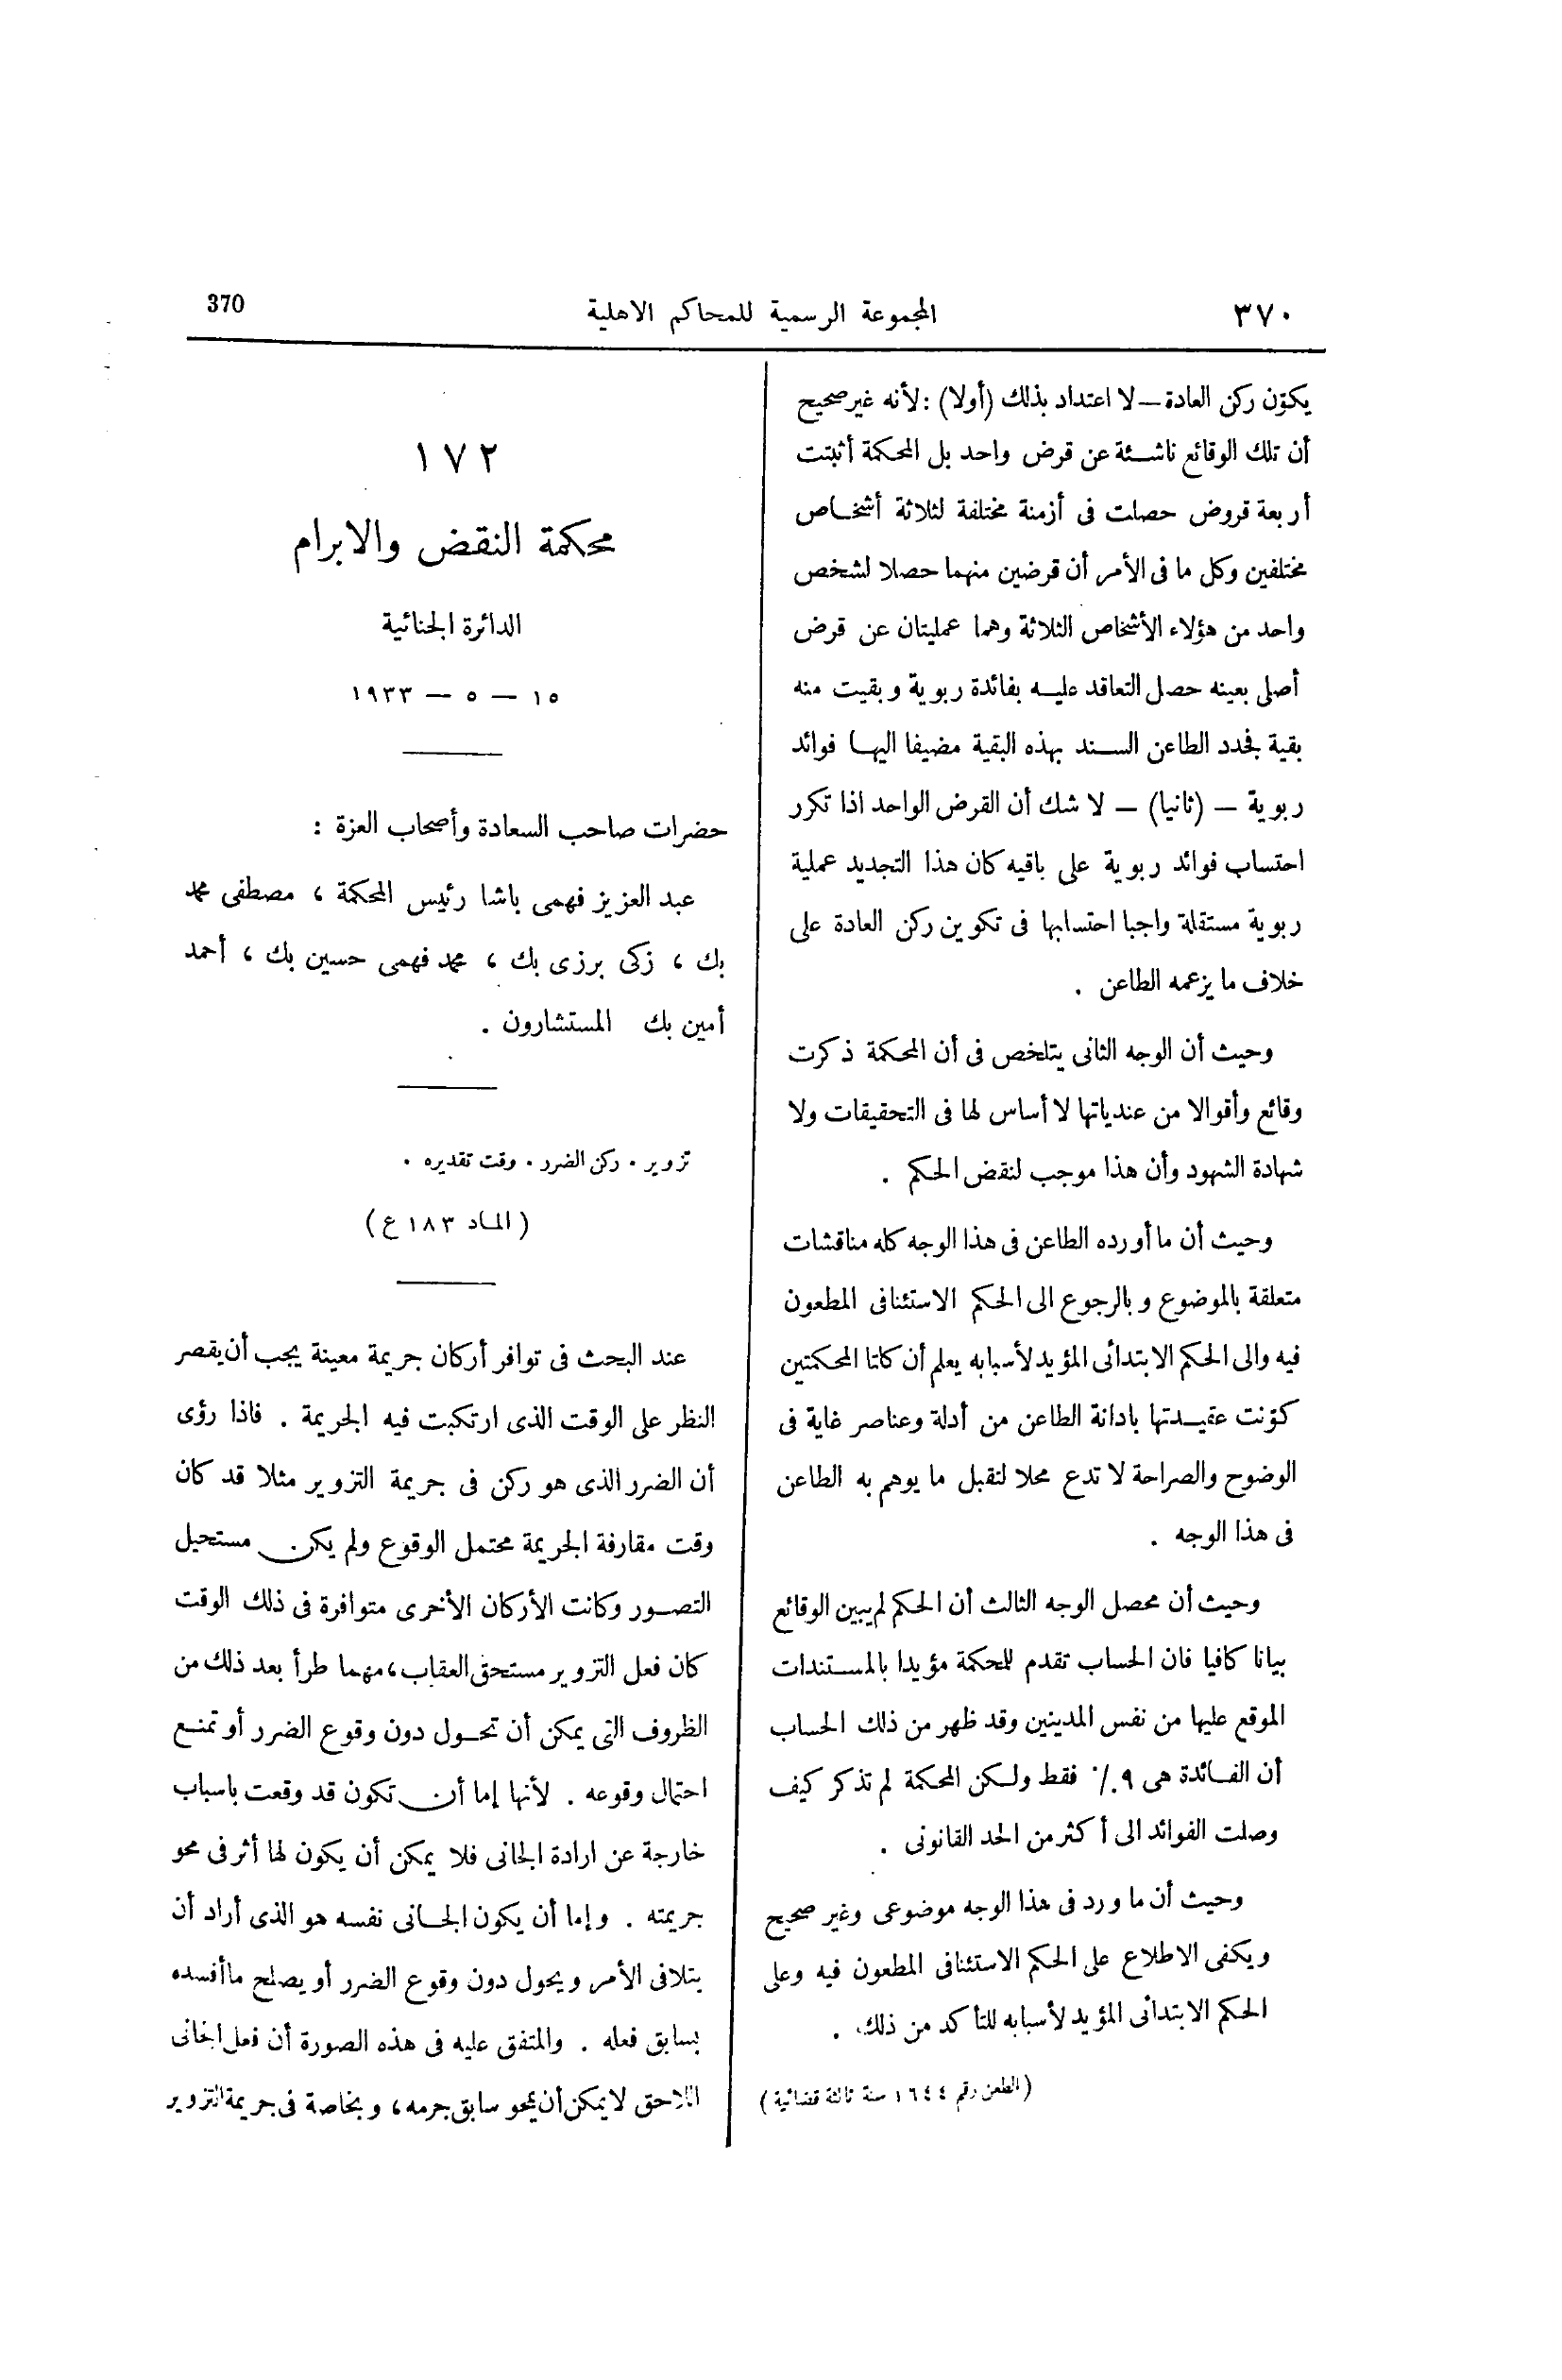 ٣٧٠
المجموعة الرسمية للمحاكم الاهلية
370
يكوّن ركن العادة — لا اعتداد بذلك (أولا) : لأنه غير صحيح
أن تلك الوقائع ناشئة عن قرض واحد بل المحكمة أثبتت
أربعة قروض حصلت فى أزمنة مختلفة لثلاثة أشخاص
مختلفين وكل ما فى الأمر أن قرضين منهما حصلا لشخص
واحد من هؤلاء الأشخاص الثلاثة وهما عمليتان عن قرض
أصلى بعينه حصل التعاقد عليه بفائدة ربوية وبقيت منه
بقية فجدد الطاعن السند بهذه البقية مضيفا اليها فوائد
ربوية — (ثانيا) — لا شك أن القرض الواحد اذا تكرر
احتساب فوائد ربوية على باقيه كان هذا التجديد عملية
ربوية مستقلة واجبا احتسابها فى تكوين ركن العادة على
خلاف ما يزعمه الطاعن .
وحيث أن الوجه الثانى يتلخص فى أن المحكمة ذكرت
وقائع وأقوالا من عندياتها لا أساس لها فى التحقيقات ولا
شهادة الشهود وأن هذا موجب لنقض الحكم .
وحيث أن ما أورده الطاعن فى هذا الوجه كله مناقشات
متعلقة بالموضوع وبالرجوع الى الحكم الاستئنافى المطعون
فيه والى الحكم الابتدائى المؤيد لأسبابه يعلم أن كلتا المحكمتين
كوّنت عقيدتها بادانة الطاعن من أدلة وعناصر غاية فى
الوضوح والصراحة لا تدع محلا لتقبل ما يوهم به الطاعن
فى هذا الوجه .
وحيث أن محصل الوجه الثالث أن الحكم لم يبين الوقائع
بيانا كافيا فان الحساب تقدم للمحكمة مؤيدا بالمستندات
الموقع عليها من نفس المدينين وقد ظهر من ذلك الحساب
أن الفائدة هى ٩ ٪ فقط ولكن المحكمة لم تذكر كيف
وصلت الفوائد الى أكثر من الحد القانونى .
وحيث أن ما ورد فى هذا الوجه موضوعى وغير صحيح
ويكفى الاطلاع على الحكم الاستئنافى المطعون فيه وعلى
الحكم الابتدائى المؤيد لأسبابه للتأكد من ذلك .
(الطعن رقم ١٦٤٤ سنة ثالثة قضائية)
١٧٢
محكمة النقض والابرام
الدائرة الجنائية
١٥ — ٥ — ١٩٣٣
حضرات صاحب السعادة وأصحاب العزة :
عبد العزيز فهمى باشا رئيس المحكمة ، مصطفى محمد
بك ، زكى برزى بك ، محمد فهمى حسين بك ، أحمد
أمين بك المستشارون .
تزوير . ركن الضرر . وقت تقديره .
(الماد ١٨٣ ع)
عند البحث فى توافر أركان جريمة معينة يجب أن يقصر
النظر على الوقت الذى ارتكبت فيه الجريمة . فاذا رؤى
أن الضرر الذى هو ركن فى جريمة التزوير مثلا قد كان
وقت مقارفة الجريمة محتمل الوقوع ولم يكن مستحيل
التصور وكانت الأركان الأخرى متوافرة فى ذلك الوقت
كان فعل التزوير مستحق العقاب ، مهما طرأ بعد ذلك من
الظروف التى يمكن أن تحول دون وقوع الضرر أو تمنع
احتمال وقوعه . لأنها إما أن تكون قد وقعت باسباب
خارجة عن ارادة الجانى فلا يمكن أن يكون لها أثر فى محو
جريمته . وإما أن يكون الجانى نفسه هو الذى أراد أن
يتلافى الأمر ويحول دون وقوع الضرر أو يصلح ما أفسده
بسابق فعله . والمتفق عليه فى هذه الصورة أن فعل الجانى
اللاحق لا يمكن أن يمحو سابق جرمه ، وبخاصة فى جريمة التزوير